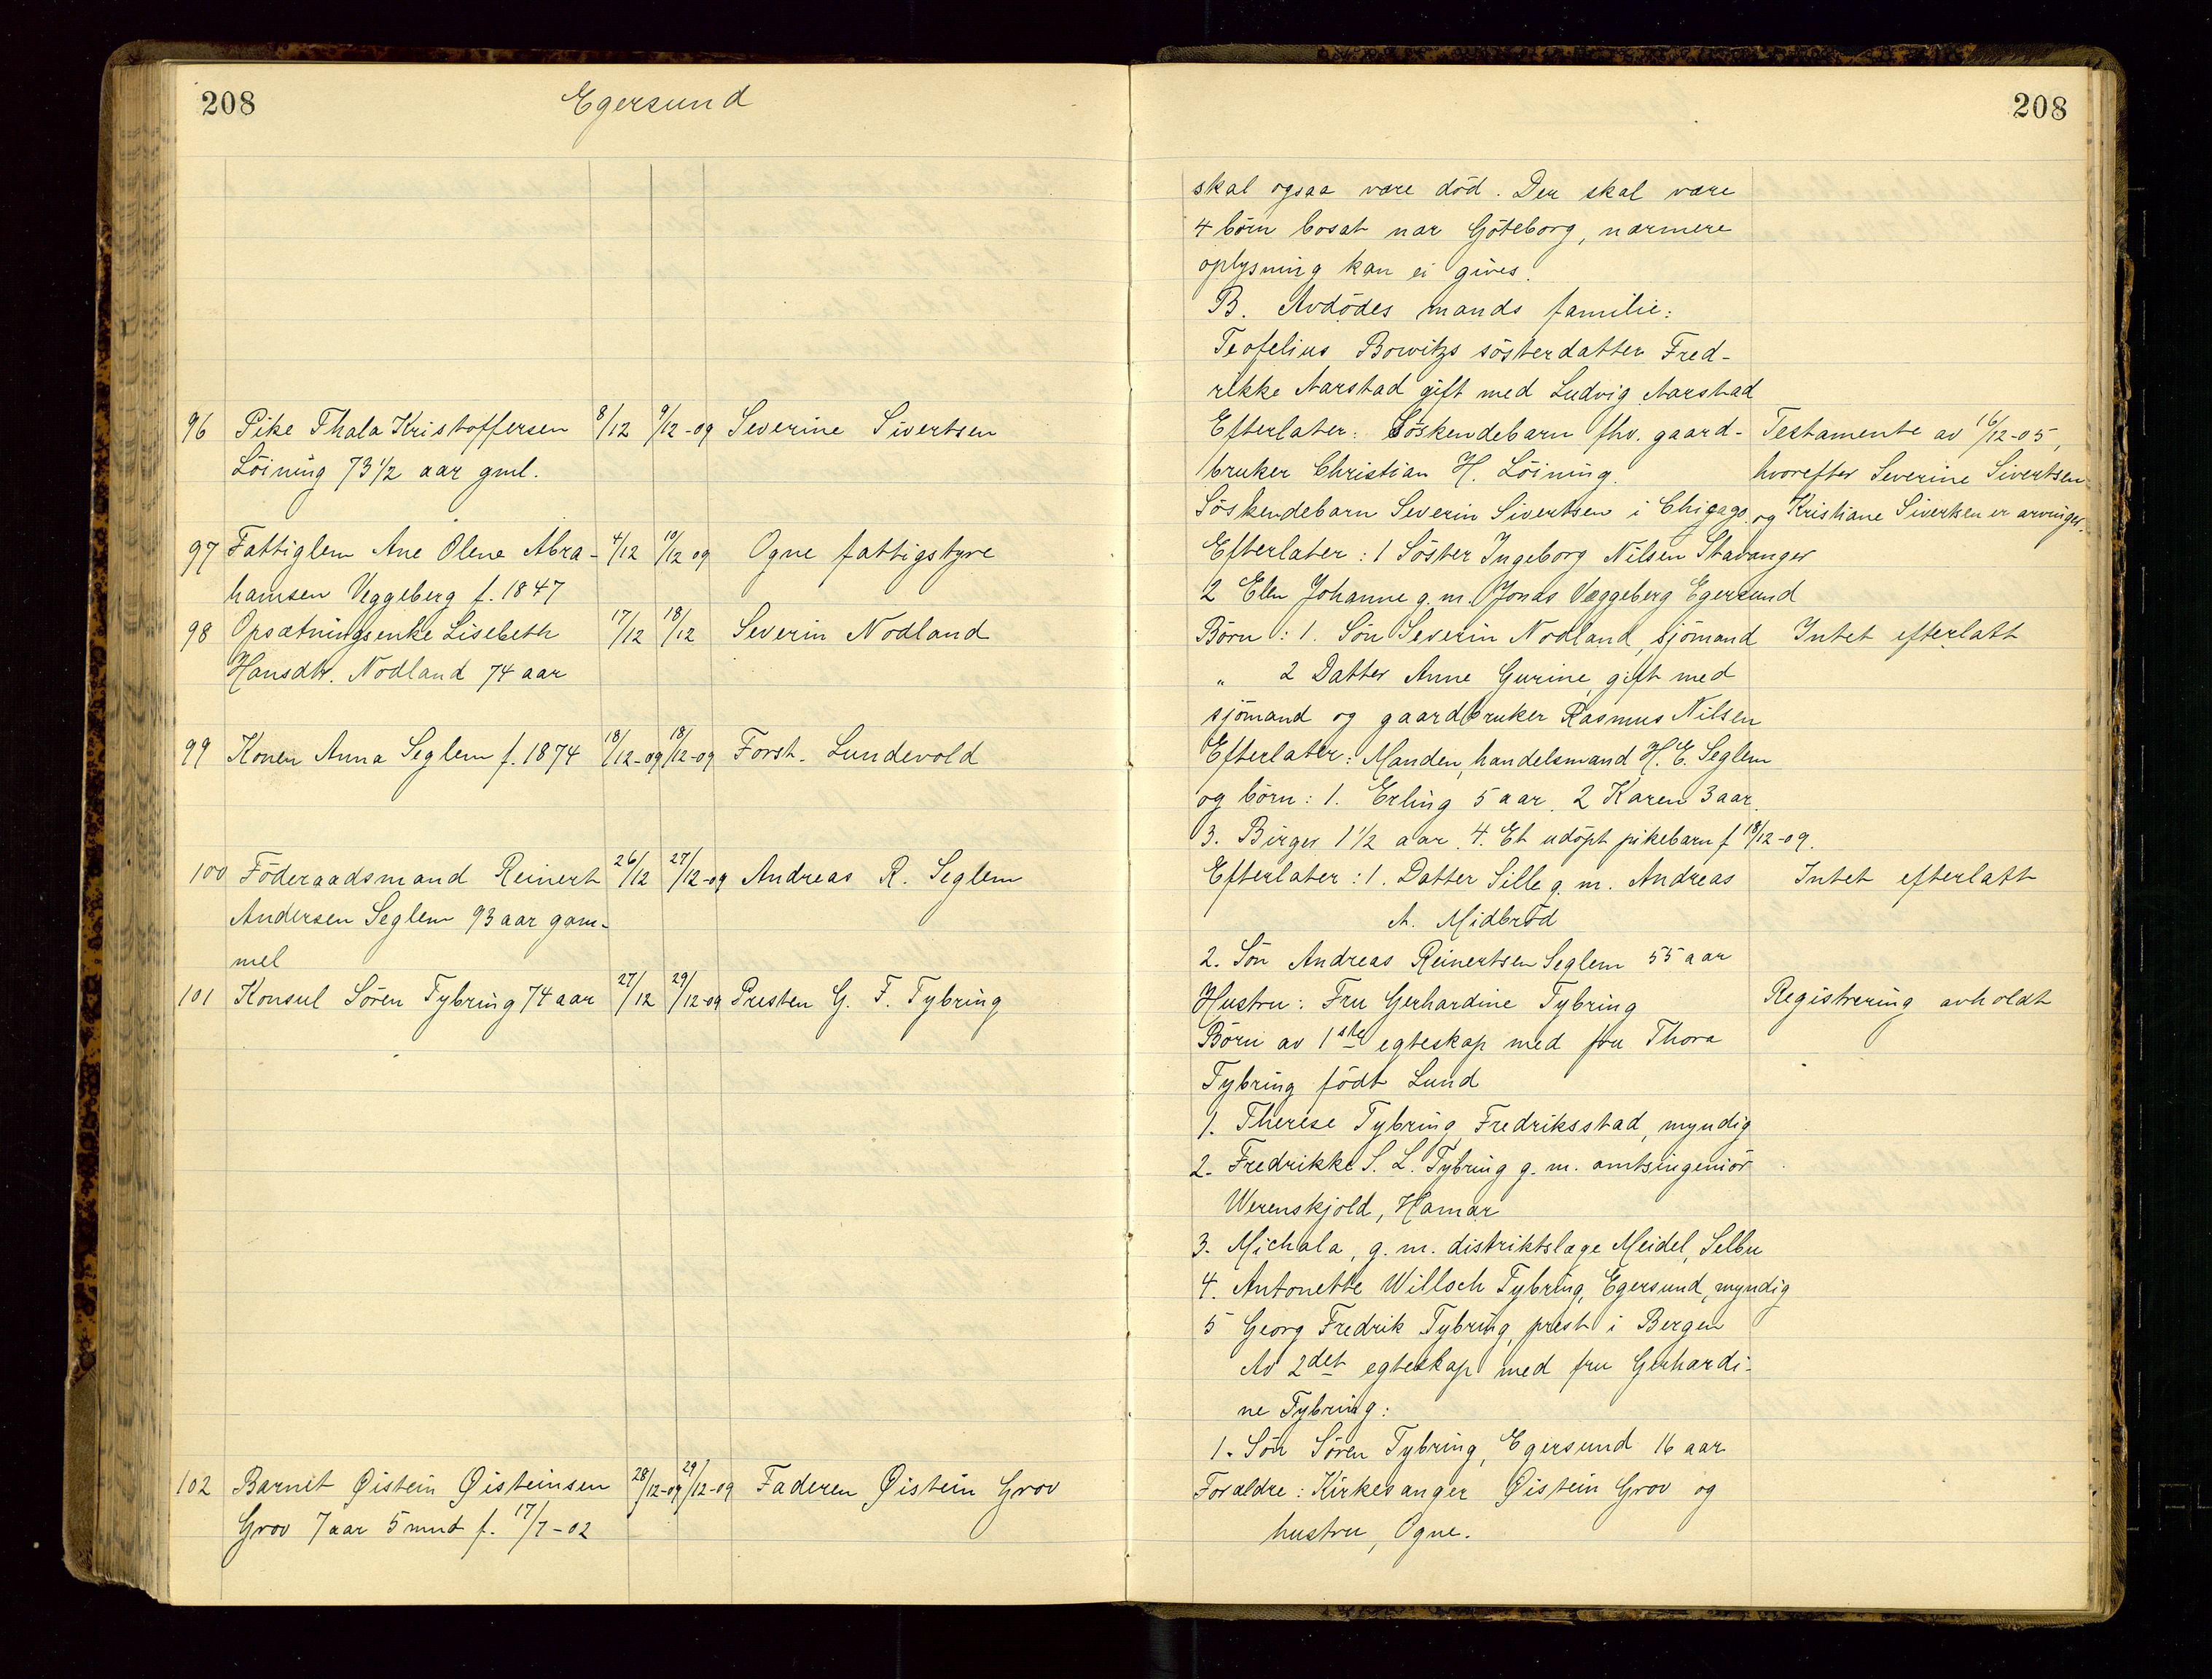 208
Egersund
96 Pike Thala Kristoffersen 8/12 9/12-09 Severine Sivertsen
Löining 73 1/2 aar gml.
97 Fattiglem Ane Olene Abra- 4/12 10/12 09 Ogne fattigstyre
hamsen Veggeberg f. 1847
98 Opsætningsenke Lisebeth 17/12 18/12 Severin Nodland
Hansdtr. Nodland 74 aar
99 Konen Anna Seglem f. 1874 18/12-09 18/12-09 Forst. Lundevold
100 Föderaadsmand Reinert 26/12 27/12-09 Andreas R. Seglem
Andersen Seglem 93 aar gam-
mel
101 Konsul Sören Tybring 74 aar 27/12 29/12-09 Presten G. F. Tybring
102 Barnet Øistein Øisteinsen 28/12-09 29/12-09 Faderen Øistein Grov
Grov 7 aar 5 mnd f. 17/7-02
208
skal ogsaa være död. Der skal være
4 börn bosat nær Göteborg, nærmere
oplysning kan ei gives.
B. Avdödes mands familie:
Teofelius Bowitzs sösterdatter Fred-
rikke Aarstad gift med Ludvig Aarstad
Efterlater: Söskendebarn fhv. gaard- Testamente av 16/12-05,
bruker Christian H. Löining. hvorefter Severine Sivertsen
Söskendebarn Severin Sivertsen i Chigago. og Kristiane Sivertsen er arvinger.
Efterlater: 1 Söster Ingeborg Nilsen Stavanger
2 Elen Johanne g. m. Jonas Væggeberg Egersund
Börn: 1. Sön Severin Nodland, sjömand Intet efterlatt
" 2 Datter Anne Gurine, gift med
sjömand og gaardbruker Rasmus Nilsen
Efterlater: Manden, handelsmand H. E. Seglem
og börn: 1. Erling 5 aar. 2 Karen 3 aar.
3. Birger 1 1/2 aar. 4. Et udöpt pikebarn f 18/12-09.
Efterlater: 1. Datter Sille g. m. Andreas Intet efterlatt
A. Midbröd
2. Sön Andreas Reinertsen Seglem 55 aar
Hustru: Fru Gerhardine Tybring Registrering avholdt
Börn av 1ste egteskap med fru Thora
Tybring födt Lund
1. Therese Tybring Fredriksstad, myndig
2. Fredrikke S. L. Tybring g. m. amtsingeniör
Werenskjold, Hamar
3. Michala, g. m. distriktslæge Meidel, Selbu
4. Antonette Willoch Tybring, Egersund, myndig
5 Georg Fredrik Tybring, prest i Bergen
Av 2det egteskap med fru Gerhardi-
ne Tybring:
1. Sön Sören Tybring, Egersund 16 aar
Forældre: Kirkesanger Øistein Grov og
hustru, Ogne.